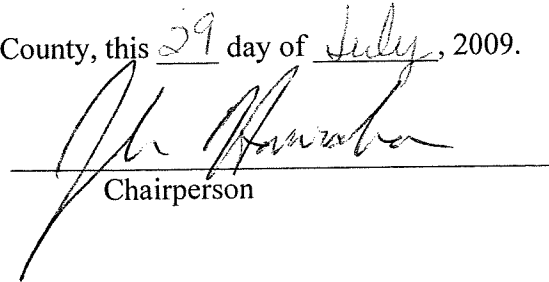 County, this 29 day of July, 2009.
Chairperson